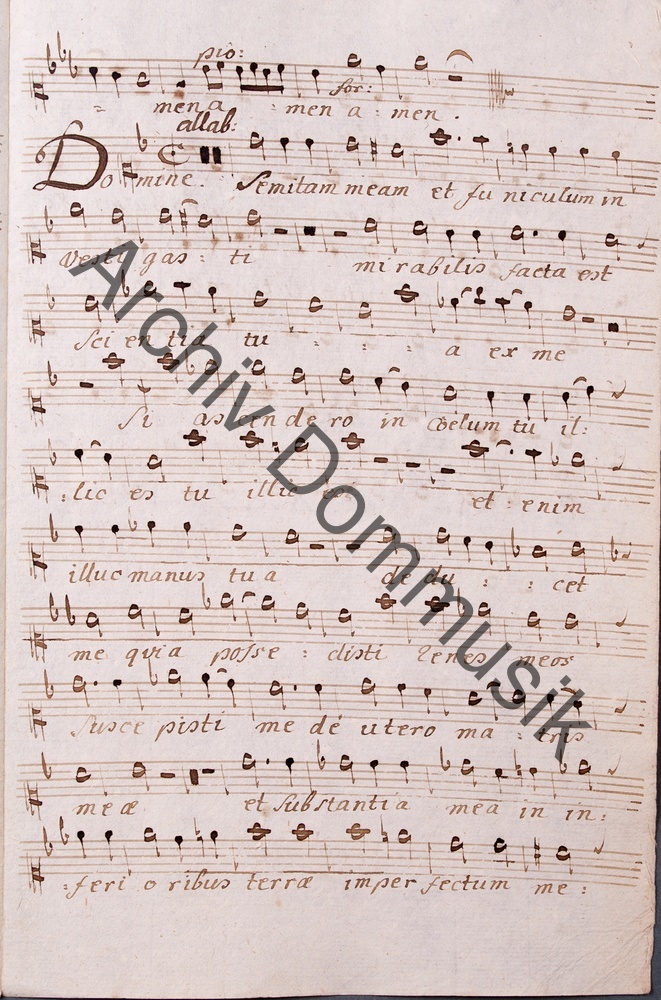 pio:
for:
men a - men a - men.
allab:
Domine. Semitam meam et funiculum in
vesti gas - ti mirabilis facta est
Scientia tu - - - a ex me
Si ascendero in coelum tu il:
:lic es tu illic et - enim
illuc manus tua de du - - cet
me quia posse - disti renes meos
Suscepisti me dé utero ma - tris
meæ et Substantia mea in in:
:feri oribus terræ imperfectum me:
Archiv Dommusik